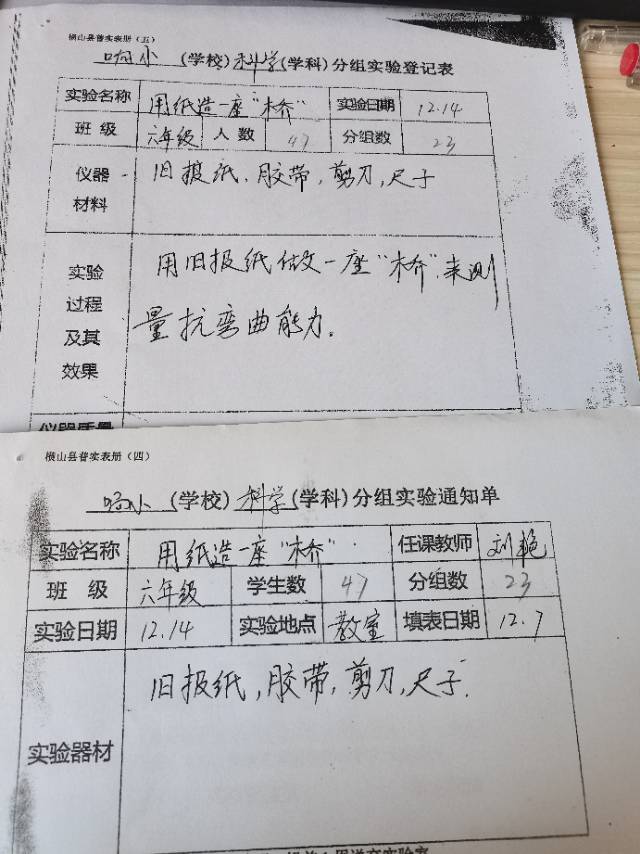 横山县普实表册（五）
响小（学校）科学（学科）分组实验登记表
实验名称 用纸造一座“桥” 实验日期 12.14
班 级 六年级 人 数 47 分组数 23
仪器材料 旧报纸、胶带，剪刀，尺子
实验过程及其效果 用旧报纸做一座“桥”来测
量抗弯曲能力．
仪器质量
横山县普实表册（四）
响小（学校）科学（学科）分组实验通知单
实验名称 用纸造一座“桥”． 任课教师 刘艳
班 级 六年级 学生数 47 分组数 23
实验日期 12.14 实验地点 教室 填表日期 12.7
实验器材 旧报纸，胶带，剪刀，尺子．